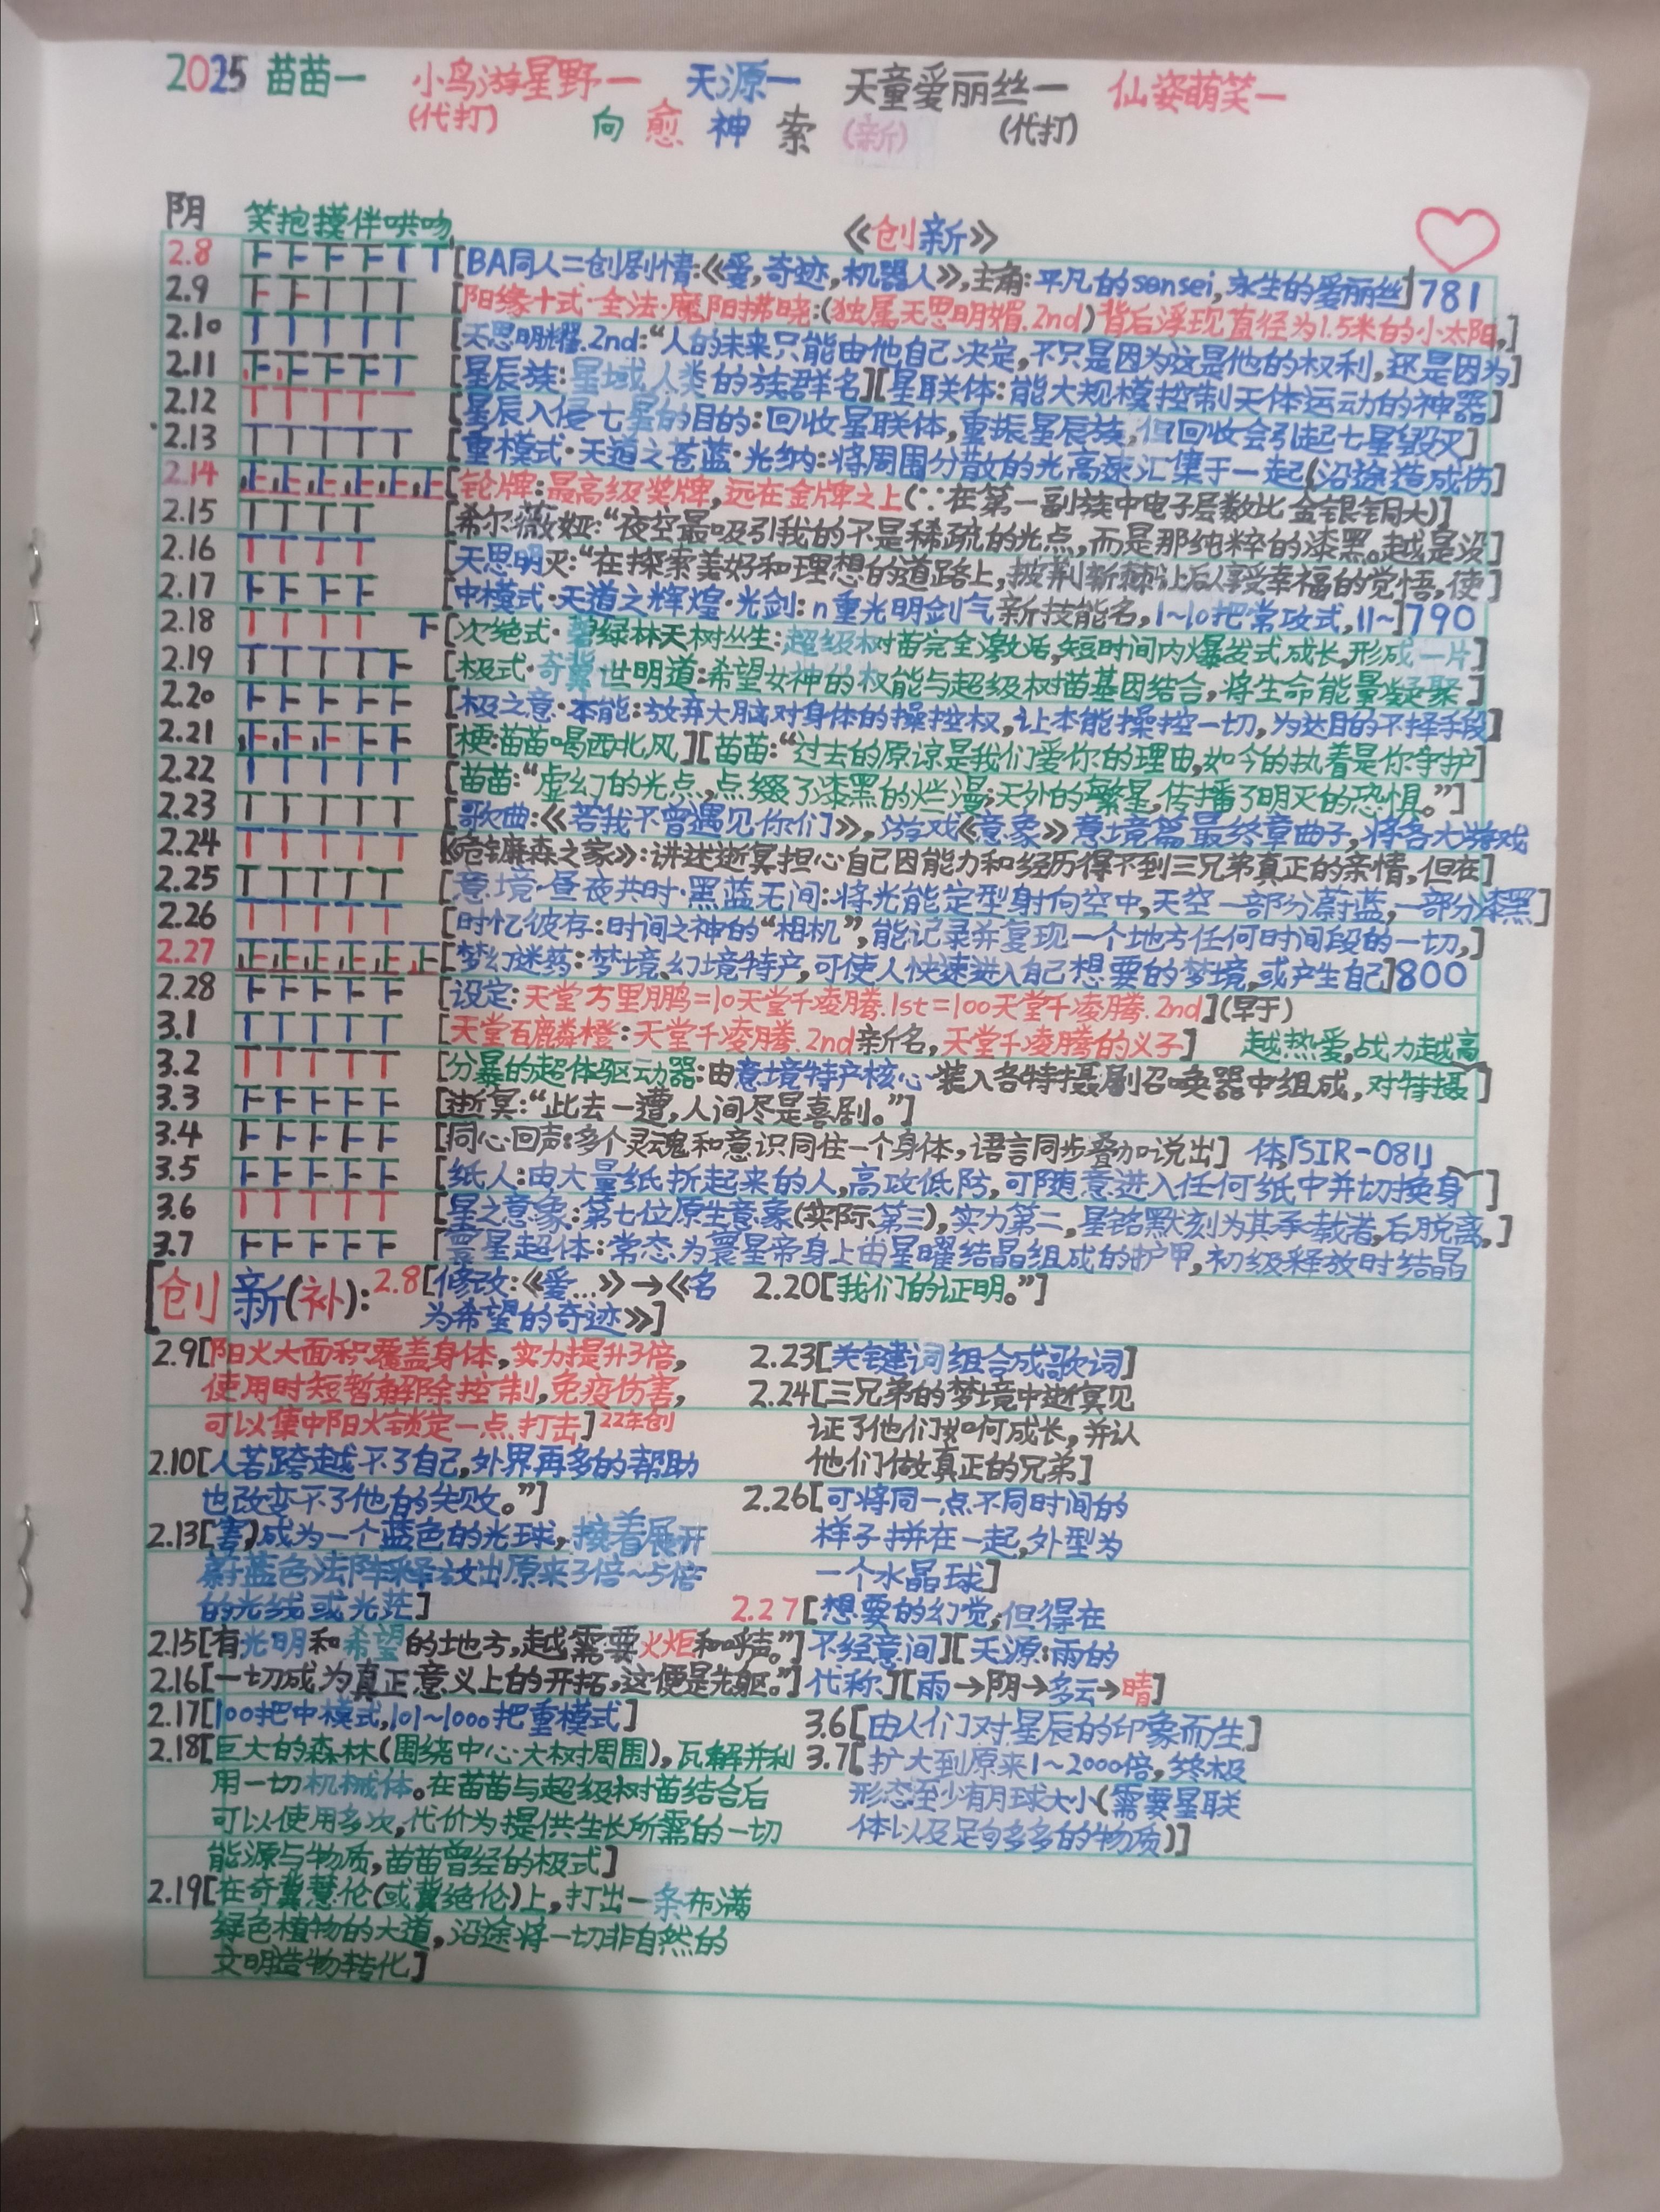 2025 苗苗一 小鸟游星野一 天源一 天童爱丽丝一 仙姿萌笑一
(代打) 向愈神索 (新) (代打)
阴 笑抱摸伴哄吻 《创新》
2.8 [BA同人二创剧情:《爱,奇迹,机器人》,主角:平凡的sensei,永生的爱丽丝]781
2.9 [阳缘十式·全法·魔阳拂晓:(独属天思明媚.2nd)背后浮现直径为1.5米的小太阳,]
2.10 [天思明耀.2nd:“人的未来只能由他自己决定,不只是因为这是他的权利,还是因为]
2.11 [星辰族:星域人类的族群名][星联体:能大规模控制天体运动的神器]
2.12 [星辰入侵七星的目的:回收星联体,重振星辰族,但回收会引起七星毁灭]
2.13 [重模式·天道之苍蓝·光纳:将周围分散的光高速汇集于一起(沿途造成伤]
2.14 [轮牌:最高级奖牌,远在金牌之上(∵在第一副族中电子层数比金银铜大)]
2.15 [希尔薇娅:“夜空最吸引我的不是稀疏的光点,而是那纯粹的漆黑。越是没]
2.16 [天思明灭:“在探索美好和理想的道路上,披荆斩棘让后人享受幸福的觉悟,使]
2.17 [中模式·天道之辉煌·光剑:n重光明剑气新技能名,1~10把常攻式,11~]790
2.18 [次绝式·碧绿林天树丛生:超级树苗完全激活,短时间内爆发式成长,形成一片]
2.19 [极式·奇冀世明道:希望女神的权能与超级树苗基因结合,将生命能量凝聚]
2.20 [极之意·本能:放弃大脑对身体的操控权,让本能操控一切,为达目的不择手段]
2.21 [梗:苗苗喝西北风][苗苗:“过去的原谅是我们爱你的理由,如今的执着是你争护]
2.22 [苗苗:“虚幻的光点,点缀了漆黑的烂漫;天外的繁星,传播了明灭的恐惧。”]
2.23 [歌曲:《若我不曾遇见你们》,游戏《意象》意境篇最终章曲子,将各大游戏
2.24 [《危镰森之家》:讲述逝冥担心自己因能力和经历得不到三兄弟真正的亲情,但在]
2.25 [意境·昼夜共时·黑蓝无间:将光能定型射向空中,天空一部分蔚蓝,一部分漆黑]
2.26 [时忆彼存:时间之神的“相机”,能记录并复现一个地方任何时间段的一切,]
2.27 [梦幻迷药:梦境、幻境特产,可使人快速进入自己想要的梦境,或产生自己]800
2.28 [设定:天堂万里鹏=10天堂千凌腾.1st=100天堂千凌腾.2nd](早于)
3.1 [天堂百麟橙:天堂千凌腾.2nd新名,天堂千凌腾的义子] 越热爱,战力越高
3.2 [分暴的超体驱动器:由意境特产核心装入各特摄剧召唤器中组成,对特摄]
3.3 [逝冥:“此去一遭,人间尽是喜剧。”]
3.4 [同心回声:多个灵魂和意识同住一个身体,语言同步叠加说出] 体「SIR-081」
3.5 [纸人:由大量纸折起来的人,高攻低防,可随意进入任何纸中并切换身]
3.6 [星之意象:第七位原生意象(实际第三),实力第二,星铭默刻为其承载者,后脱离,]
3.7 [寰星超体:常态为寰星帝身上由星曜结晶组成的护甲,初级释放时结晶
[创新(补):2.8[修改:《爱…》→《名 2.20[我们的证明。”]
为希望的奇迹》]
2.9[阳火大面积覆盖身体,实力提升3倍, 2.23[关键词组合成歌词]
使用时短暂解除控制,免疫伤害, 2.24[三兄弟的梦境中逝冥见
可以集中阳火锁定一点打击]22年创 证了他们如何成长,并认
2.10[人若跨越不了自己,外界再多的帮助 他们做真正的兄弟]
也改变不了他的失败。”] 2.26[可将同一点不同时间的
2.13[害)成为一个蓝色的光球,接着展开 样子拼在一起,外型为
蔚蓝色法阵释放出原来3倍~5倍 一个水晶球]
的光线或光茫] 2.27[想要的幻觉,但得在
2.15[有光明和希望的地方,越需要火炬和呼声。”] 不经意间][天源:雨的
2.16[一切成为真正意义上的开拓,这便是先驱。”] 代称][雨→阴→多云→晴]
2.17[100把中模式,101~1000把重模式] 3.6[由人们对星辰的印象而生]
2.18[巨大的森林(围绕中心大树周围),瓦解并利 3.7[扩大到原来1~2000倍,终极
用一切机械体。在苗苗与超级树苗结合后 形态至少有月球大小(需要星联
可以使用多次,代价为提供生长所需的一切 体以及足够多的物质)]
能源与物质,苗苗曾经的极式]
2.19[在奇冀慧伦(或冀绝伦)上,打出一条布满
绿色植物的大道,沿途将一切非自然的
文明造物转化]